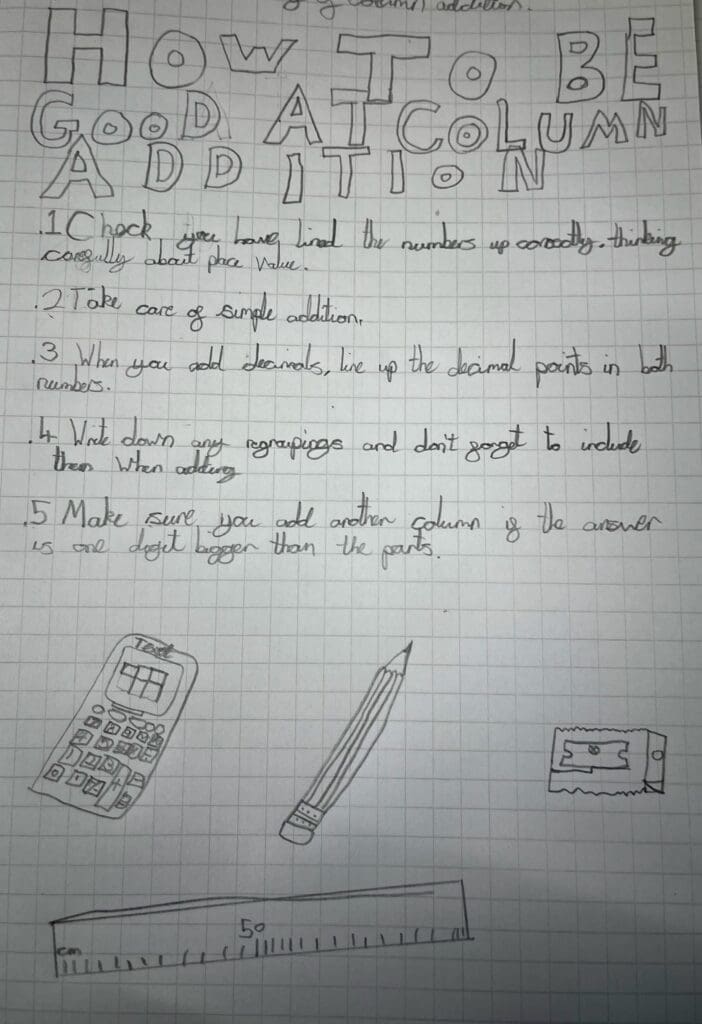 of column addition.
HOW TO BE
GOOD AT COLUMN
ADDITION
.1 Check you have lined the numbers up correctly. thinking
carefully about place value.
.2 Take care of simple addition.
.3 When you add decimals, line up the decimal points in both
numbers.
.4 Write down any regroupings and don't forget to include
them when adding
.5 Make sure you add another column if the answer
is one digit bigger than the parts.
Text
50
cm